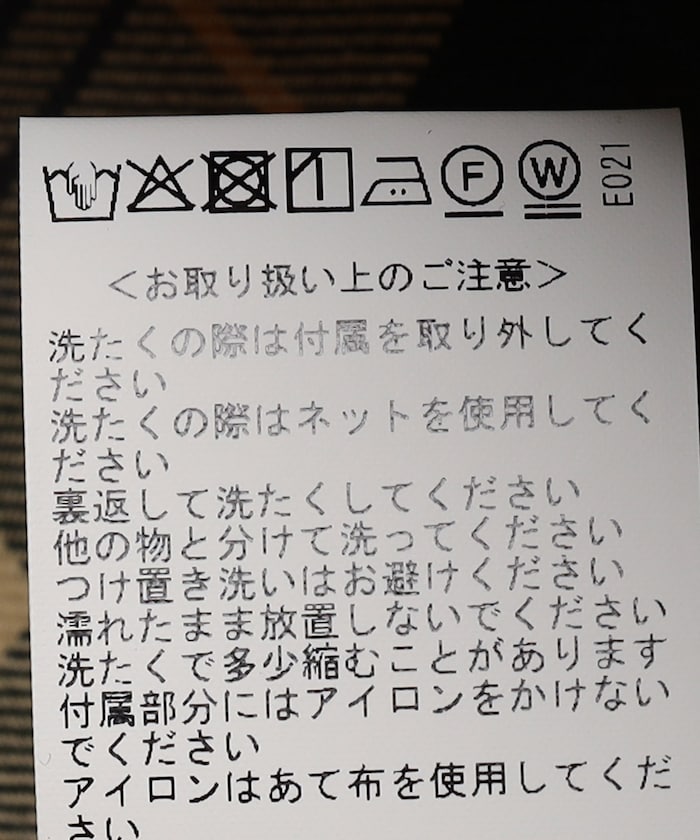 F W E021
<お取り扱い上のご注意>
洗たくの際は付属を取り外してく
ださい
洗たくの際はネットを使用してく
ださい
裏返して洗たくしてください
他の物と分けて洗ってください
つけ置き洗いはお避けください
濡れたまま放置しないでください
洗たくで多少縮むことがあります
付属部分にはアイロンをかけない
でください
アイロンはあて布を使用してくだ
さい